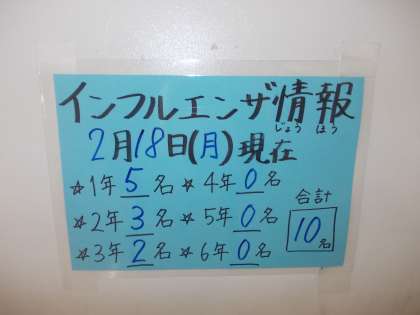 インフルエンザ情報
じょう ほう
2月18日(月)現在
☆1年 5 名 ☆4年 0 名
合計
☆2年 3 名 ☆5年 0 名
10名
☆3年 2 名 ☆6年 0 名